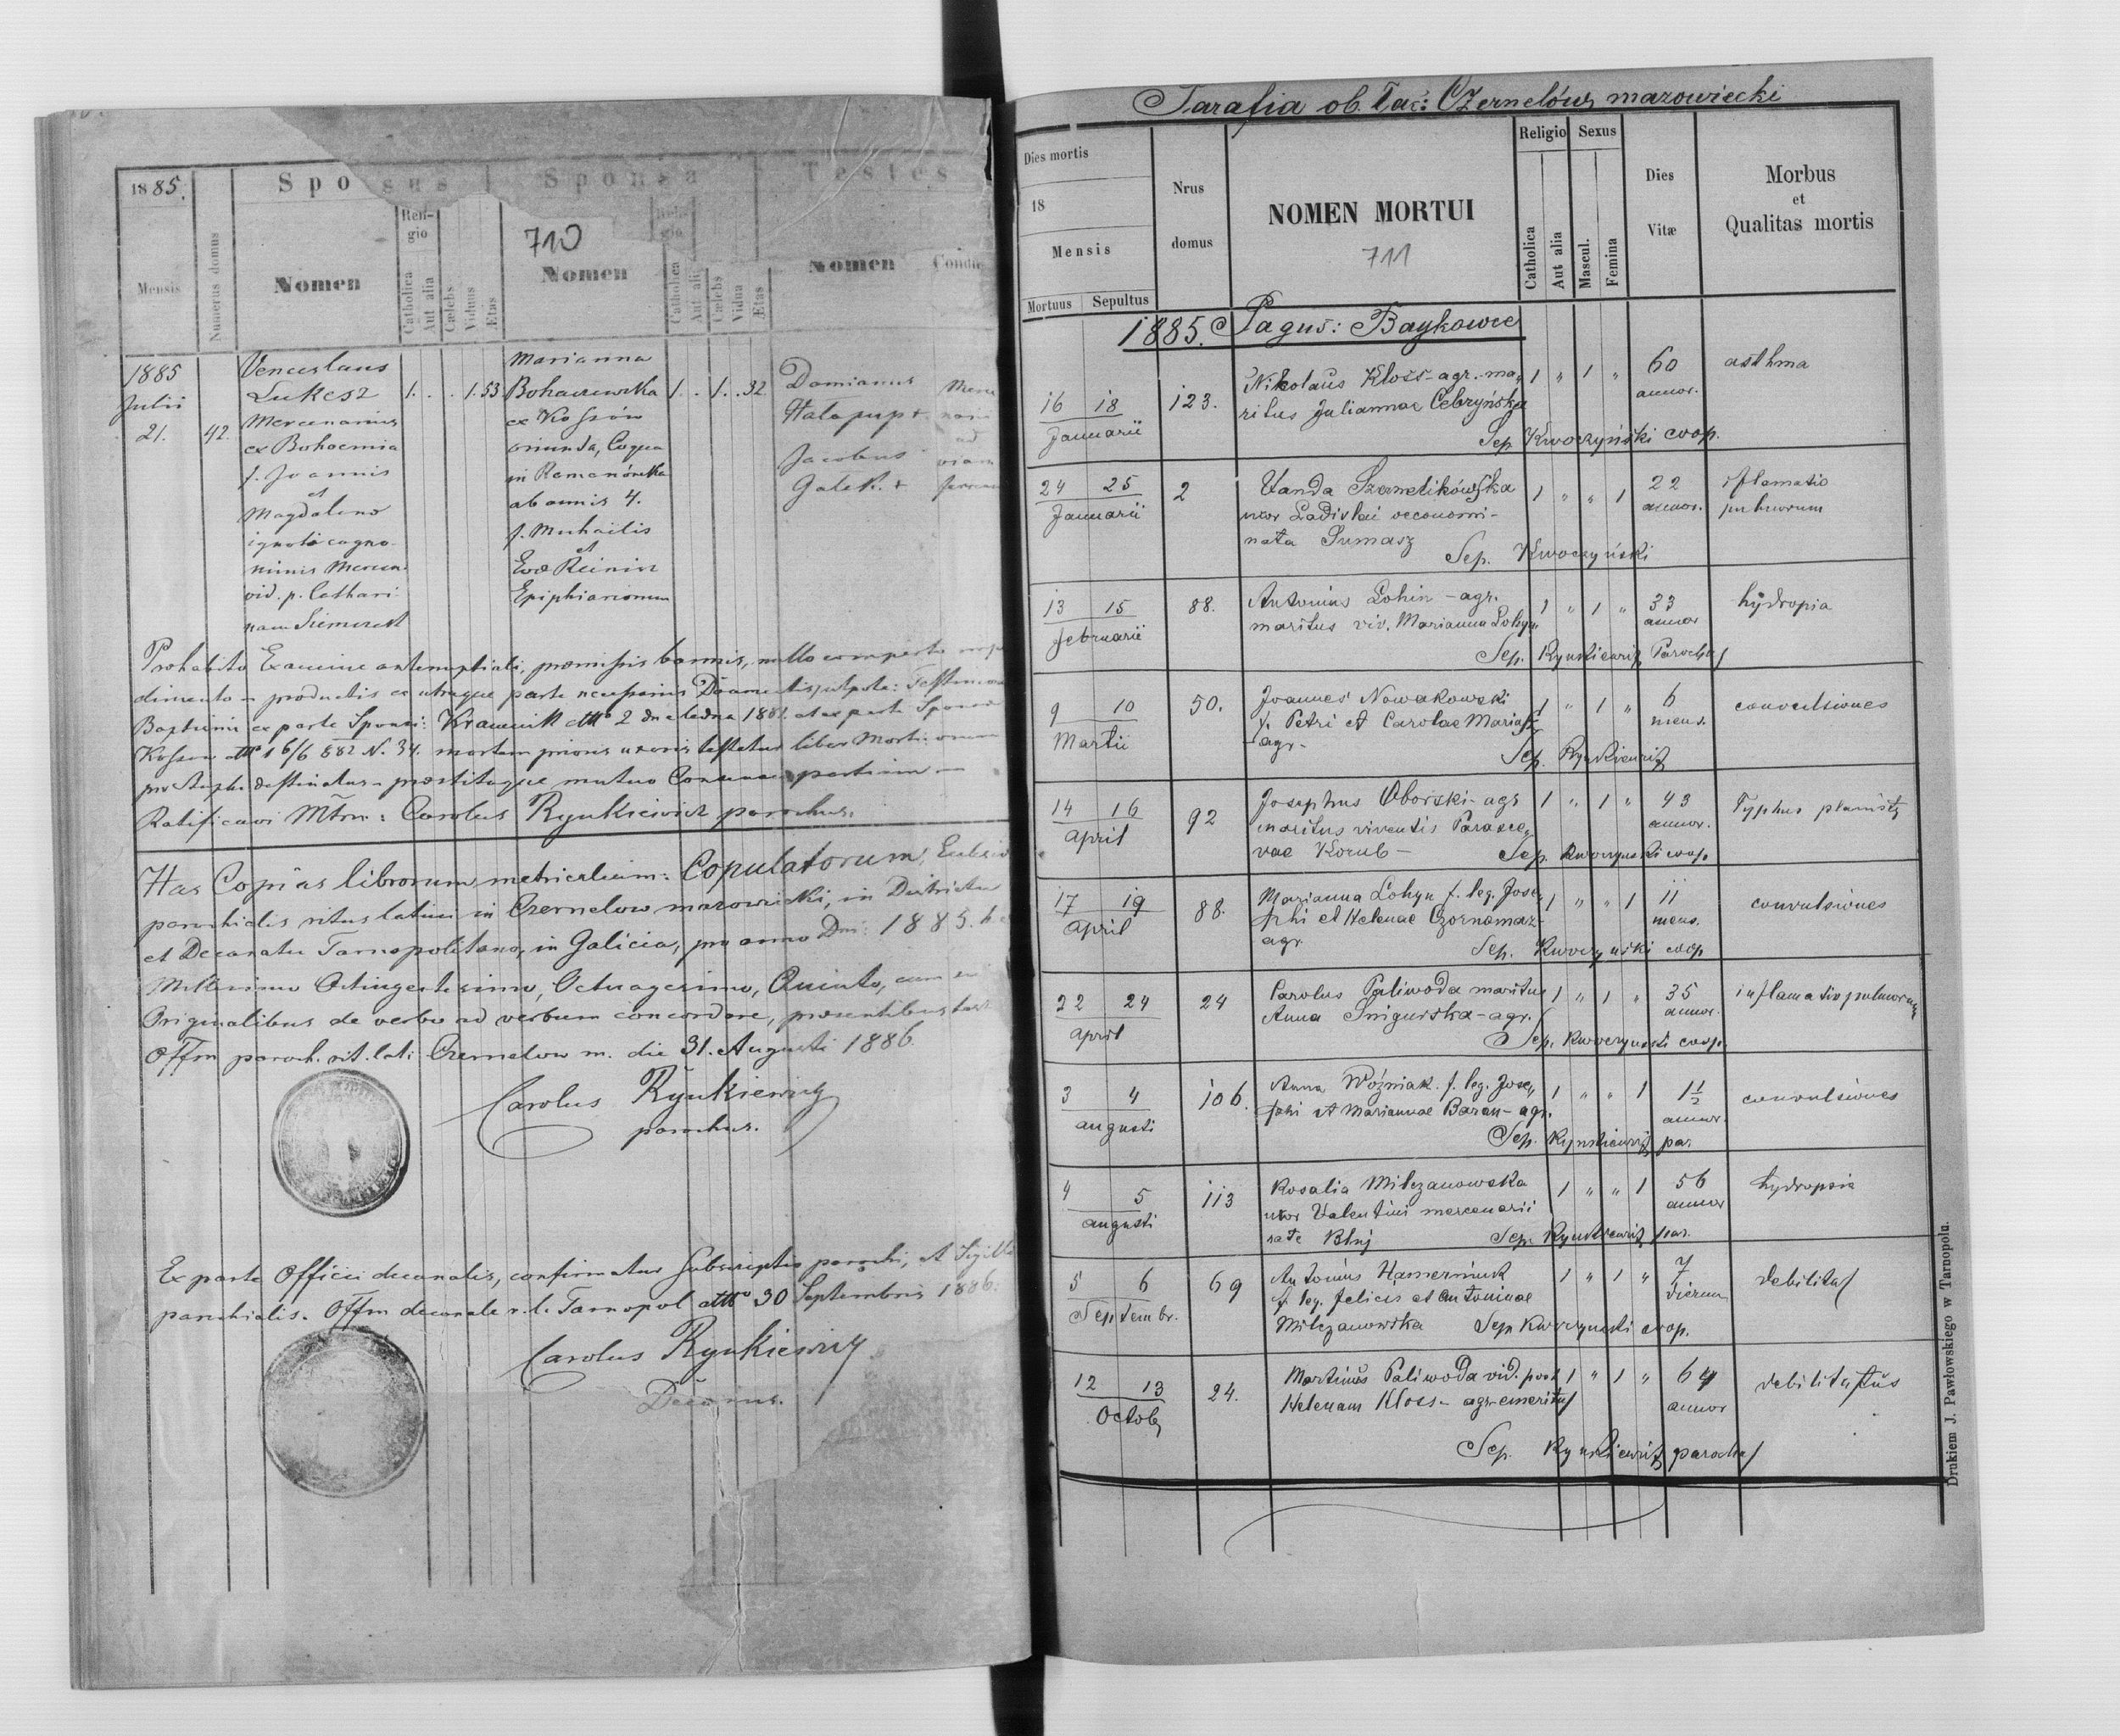 1885.
Sponsus
Sponsa
Testes
Mensis
Numerus domus
Nomen
Religio
Catholica
Aut alia
Cælebs
Viduus
Ætas
710
Nomen
Catholica
Aut alia
Cælebs
Vidua
Ætas
Nomen
1885
Julii
21.
42.
Venceslaus
Lukesz
Mercenarius
ex Bohoemia
f. Joannis
et
Magdalena
ignoti cogno-
minis
vid. p. Cathari
nam
1. . . 1. 53
Marianna
ex Kossów
oriunda, Coqua
in Romanówka
ab annis 4.
f. Michailis
et
Eva
1. . 1. . 32
Damianus
Jacobus
Galek. +
Prohabito Examine antenuptiali, præmissis bannis, nullo comperto
dimento - productis ex utraque parte
Baptismi ex parte Sponsi: 2
Kossow 16/6 882 N. 34. mortem prioris uxoris testatur liber
mutuo
Ratificavi Mtrm: Carolus Rynkiewicz parochus.
Has Copias librorum metricalium: Copulatorum,
parochialis ritus latini in Czernelow mazowiecki, in Districtu
et Decanatu Tarnopolitano, in Galicia, pro anno Dni: 1885.
Millesimo Octingentesimo, Octuagesimo, Quinto, cum
Originalibus de verbo ad verbum concordare, præsentibus
Offm paroch. rit. lati. Czernelow m. die 31. Augusti 1886.
Carolus Rynkiewicz
parochus.
Ex parte Officii decanalis, confirmatur Subscriptio parochi, et Sigilli
parochialis. Offm decanale r. l. Tarnopol 30 Septembris 1886.
Carolus Rynkiewicz
Decanus.
Parafia ob. łac: Czernelów mazowiecki
Dies mortis
18
Mensis
Mortuus Sepultus
Nrus
domus
NOMEN MORTUI
711
Religio
Catholica
Aut alia
Sexus
Mascul.
Femina
Dies
Vitæ
Morbus
et
Qualitas mortis
1885. Pagus: Baykowce
16 18
Januarii
123.
Nikolaus Kloss - agr. ma„
ritus Juliannae Cebryńska
Sep. Kwoczyński coop.
1 „ 1 „
60
annor.
asthma
24 25
Januarii
2
Vanda
uxor Ladislai oeconomi-
nata
Sep. Kwoczyński
1 „ „ 1
22
annor.
iflamatio
pulmorum
13 15
februarii
88.
Antonius Lohin - agr.
maritus viv. Marianna Lohyn
Sep. Rynkiewicz Parochus
1 „ 1 „
33
annor
hydropia
9 10
Martii
50.
Joannes Nowakowski
f. Petri et Carolae
- agr -
Sep. Rynkiewicz
1 „ 1 „
6
mens.
convulsiones
14 16
April
92
Josephus Oborski - agr
maritus viventis Parasce„
vae Korub -
Sep. Kwoczyński coop.
1 „ 1 „
43
annor.
Typhus plamisty
17 19
April
88.
Marianna Lohyn f. leg. Jose„
phi et Helenae Czornomaz -
agr.
Sep. Kwoczyński coop
1 „ „ 1
11
mens.
convulsiones
22 24
April
24
Carolus Paliwoda maritus
Anna Snigurska - agr.
Sep. Kwoczyński coop.
1 „ 1 „
35
annor.
inflamatio pulmorum
3 4
augusti
106.
Anna Woźniak f. leg. Jose„
phi et Mariannae Baran - agr.
Sep. Rynkiewicz par.
1 „ „ 1
1½
annor.
convulsiones
4 5
augusti
113
Rosalia Milczanowska
uxor Valentini mercenarii
nate
Sep. Rynkiewicz par.
1 „ „ 1
56
annor
hydropsia
5 6
Septembr.
69
Antonius Hamerniuk
f. leg. felicis et Antoninae
Milczanowska Sep Kwoczyński coop.
1 „ 1 „
7
dierum
debilitas
12 13
Octob
24.
Martinus Paliwoda vid. post
Helenam Kloss - agr. emeritus
Sep. Rynkiewicz parochus
1 „ 1 „
64
annor
Drukiem J. Pawłowskiego w Tarnopolu.